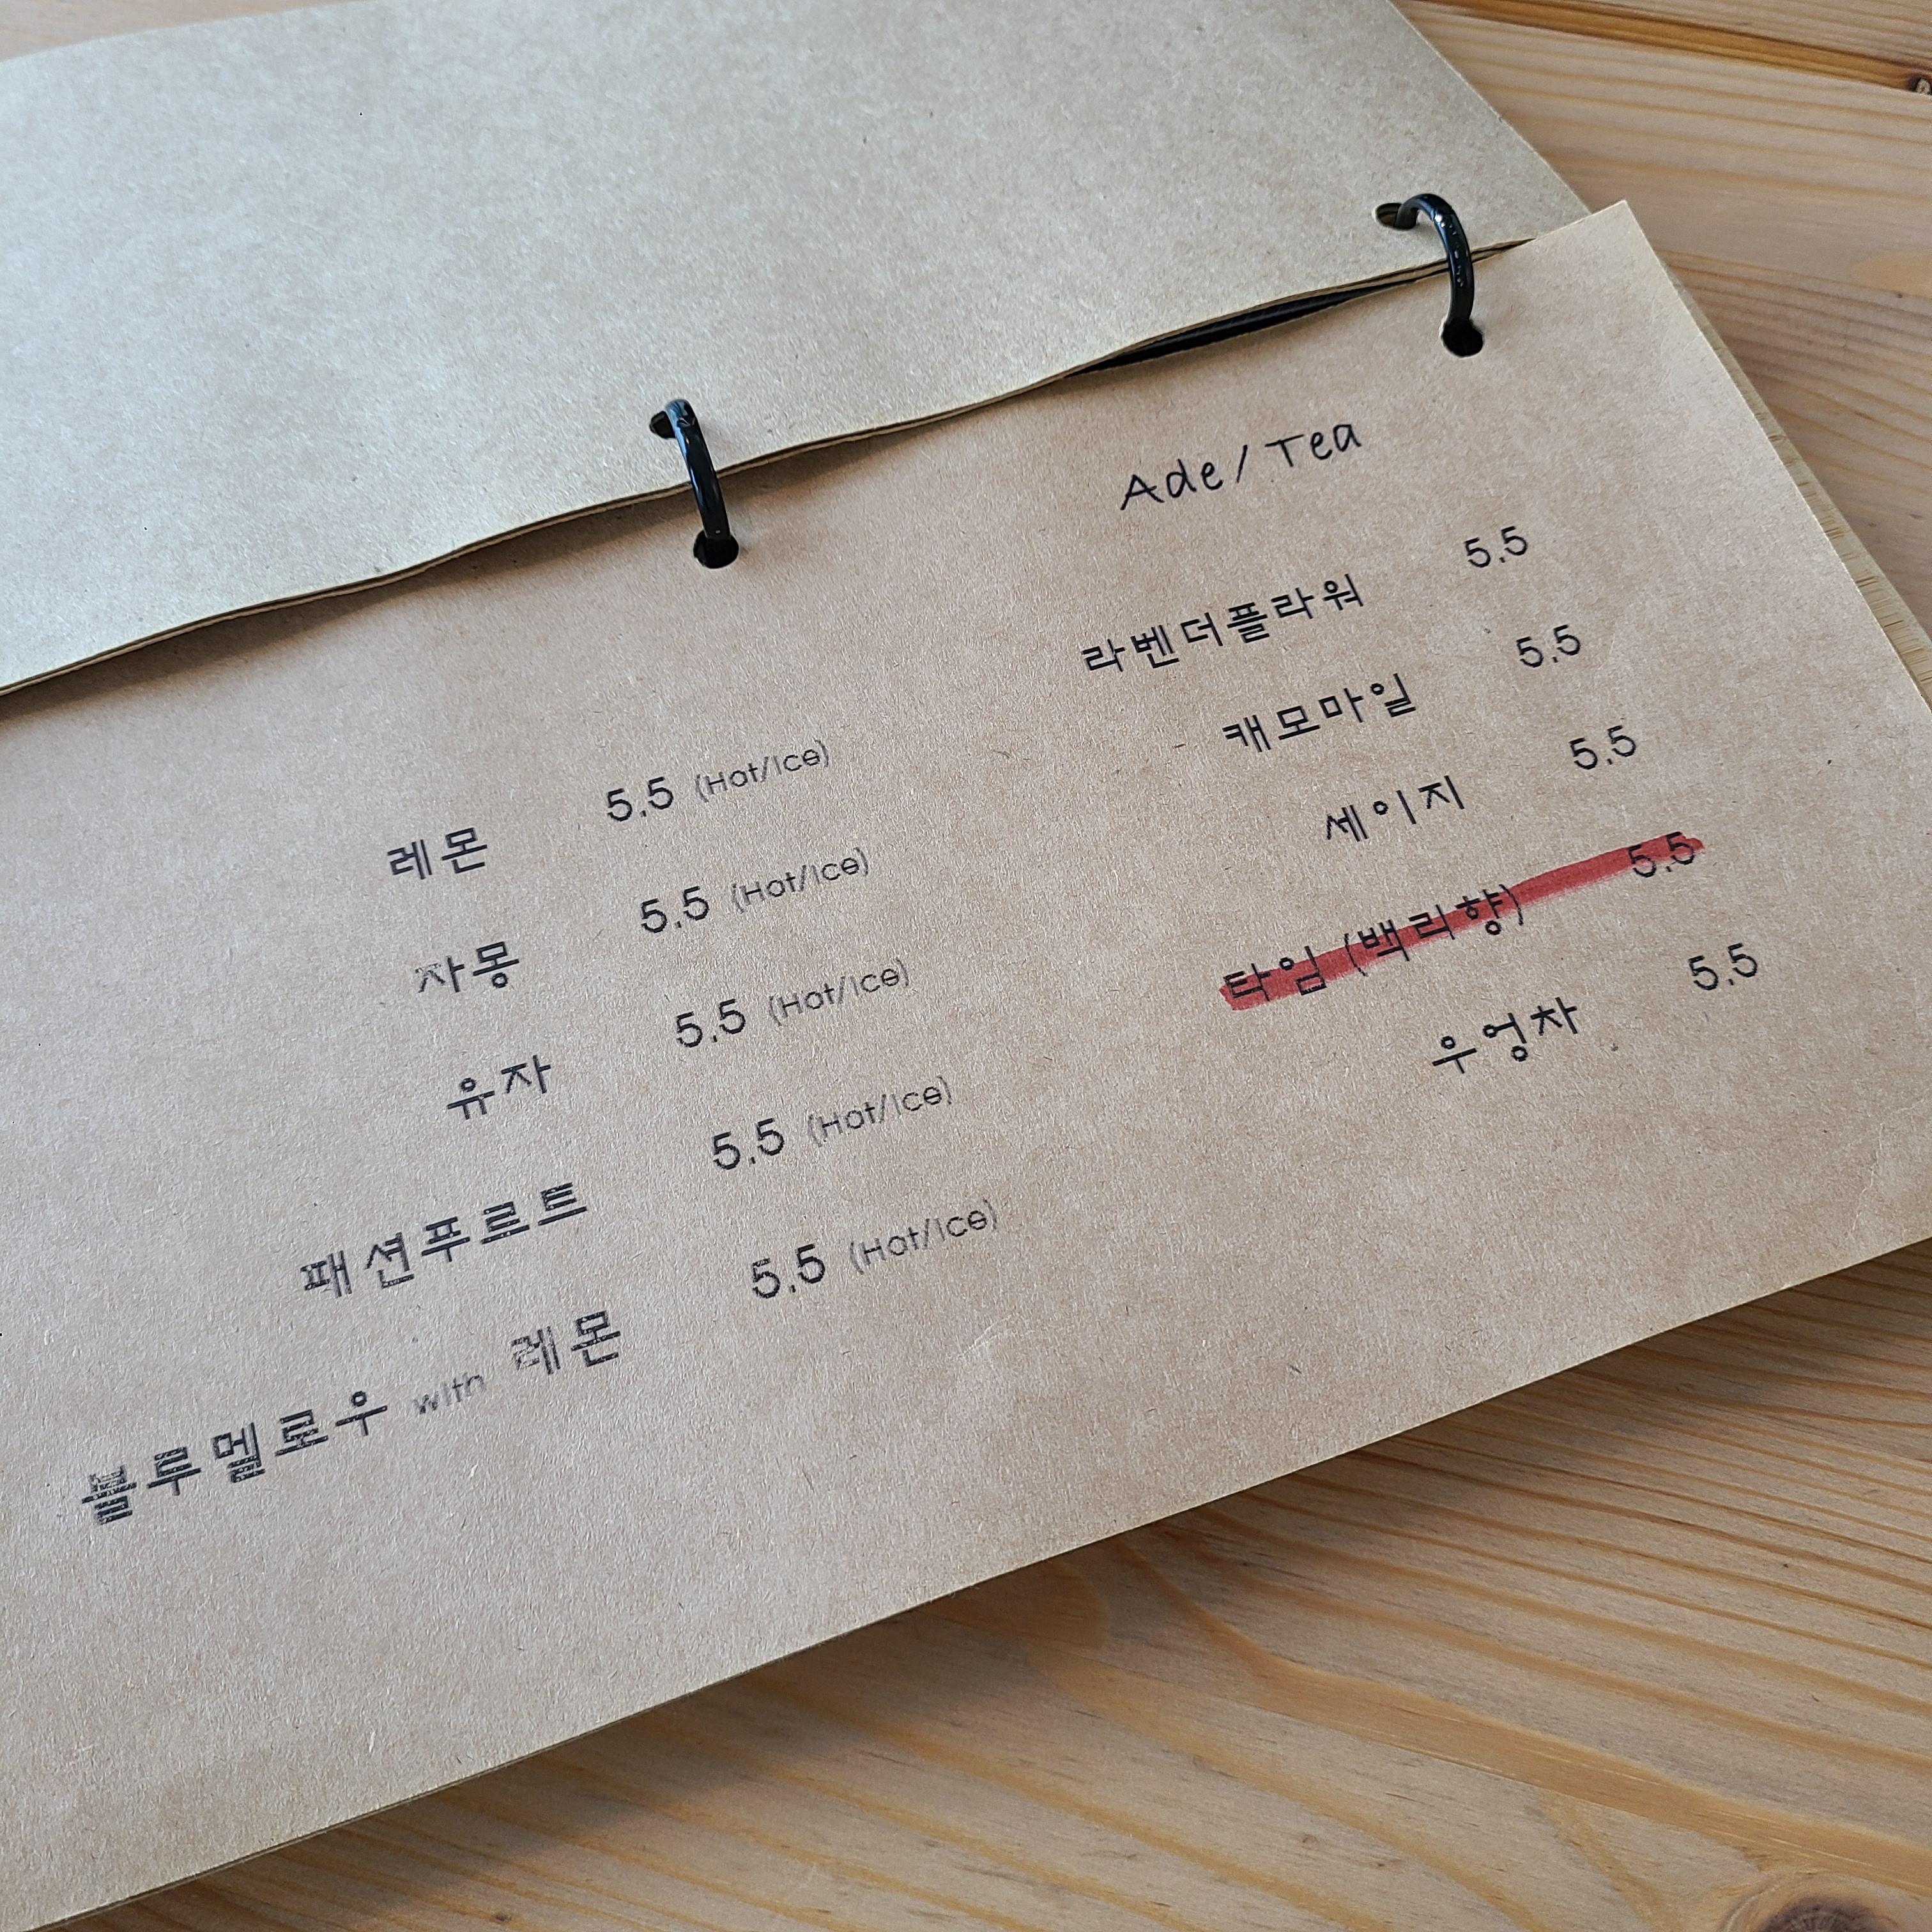 Ade/Tea
레몬 5.5 (Hot/Ice)
자몽 5.5 (Hot/Ice)
유자 5.5 (Hot/Ice)
패션푸르트 5.5 (Hot/Ice)
블루멜로우 with 레몬 5.5 (Hot/Ice)
라벤더플라워 5.5
캐모마일 5.5
세이지 5.5
타임 (백리향) 5.5
우엉차 5.5